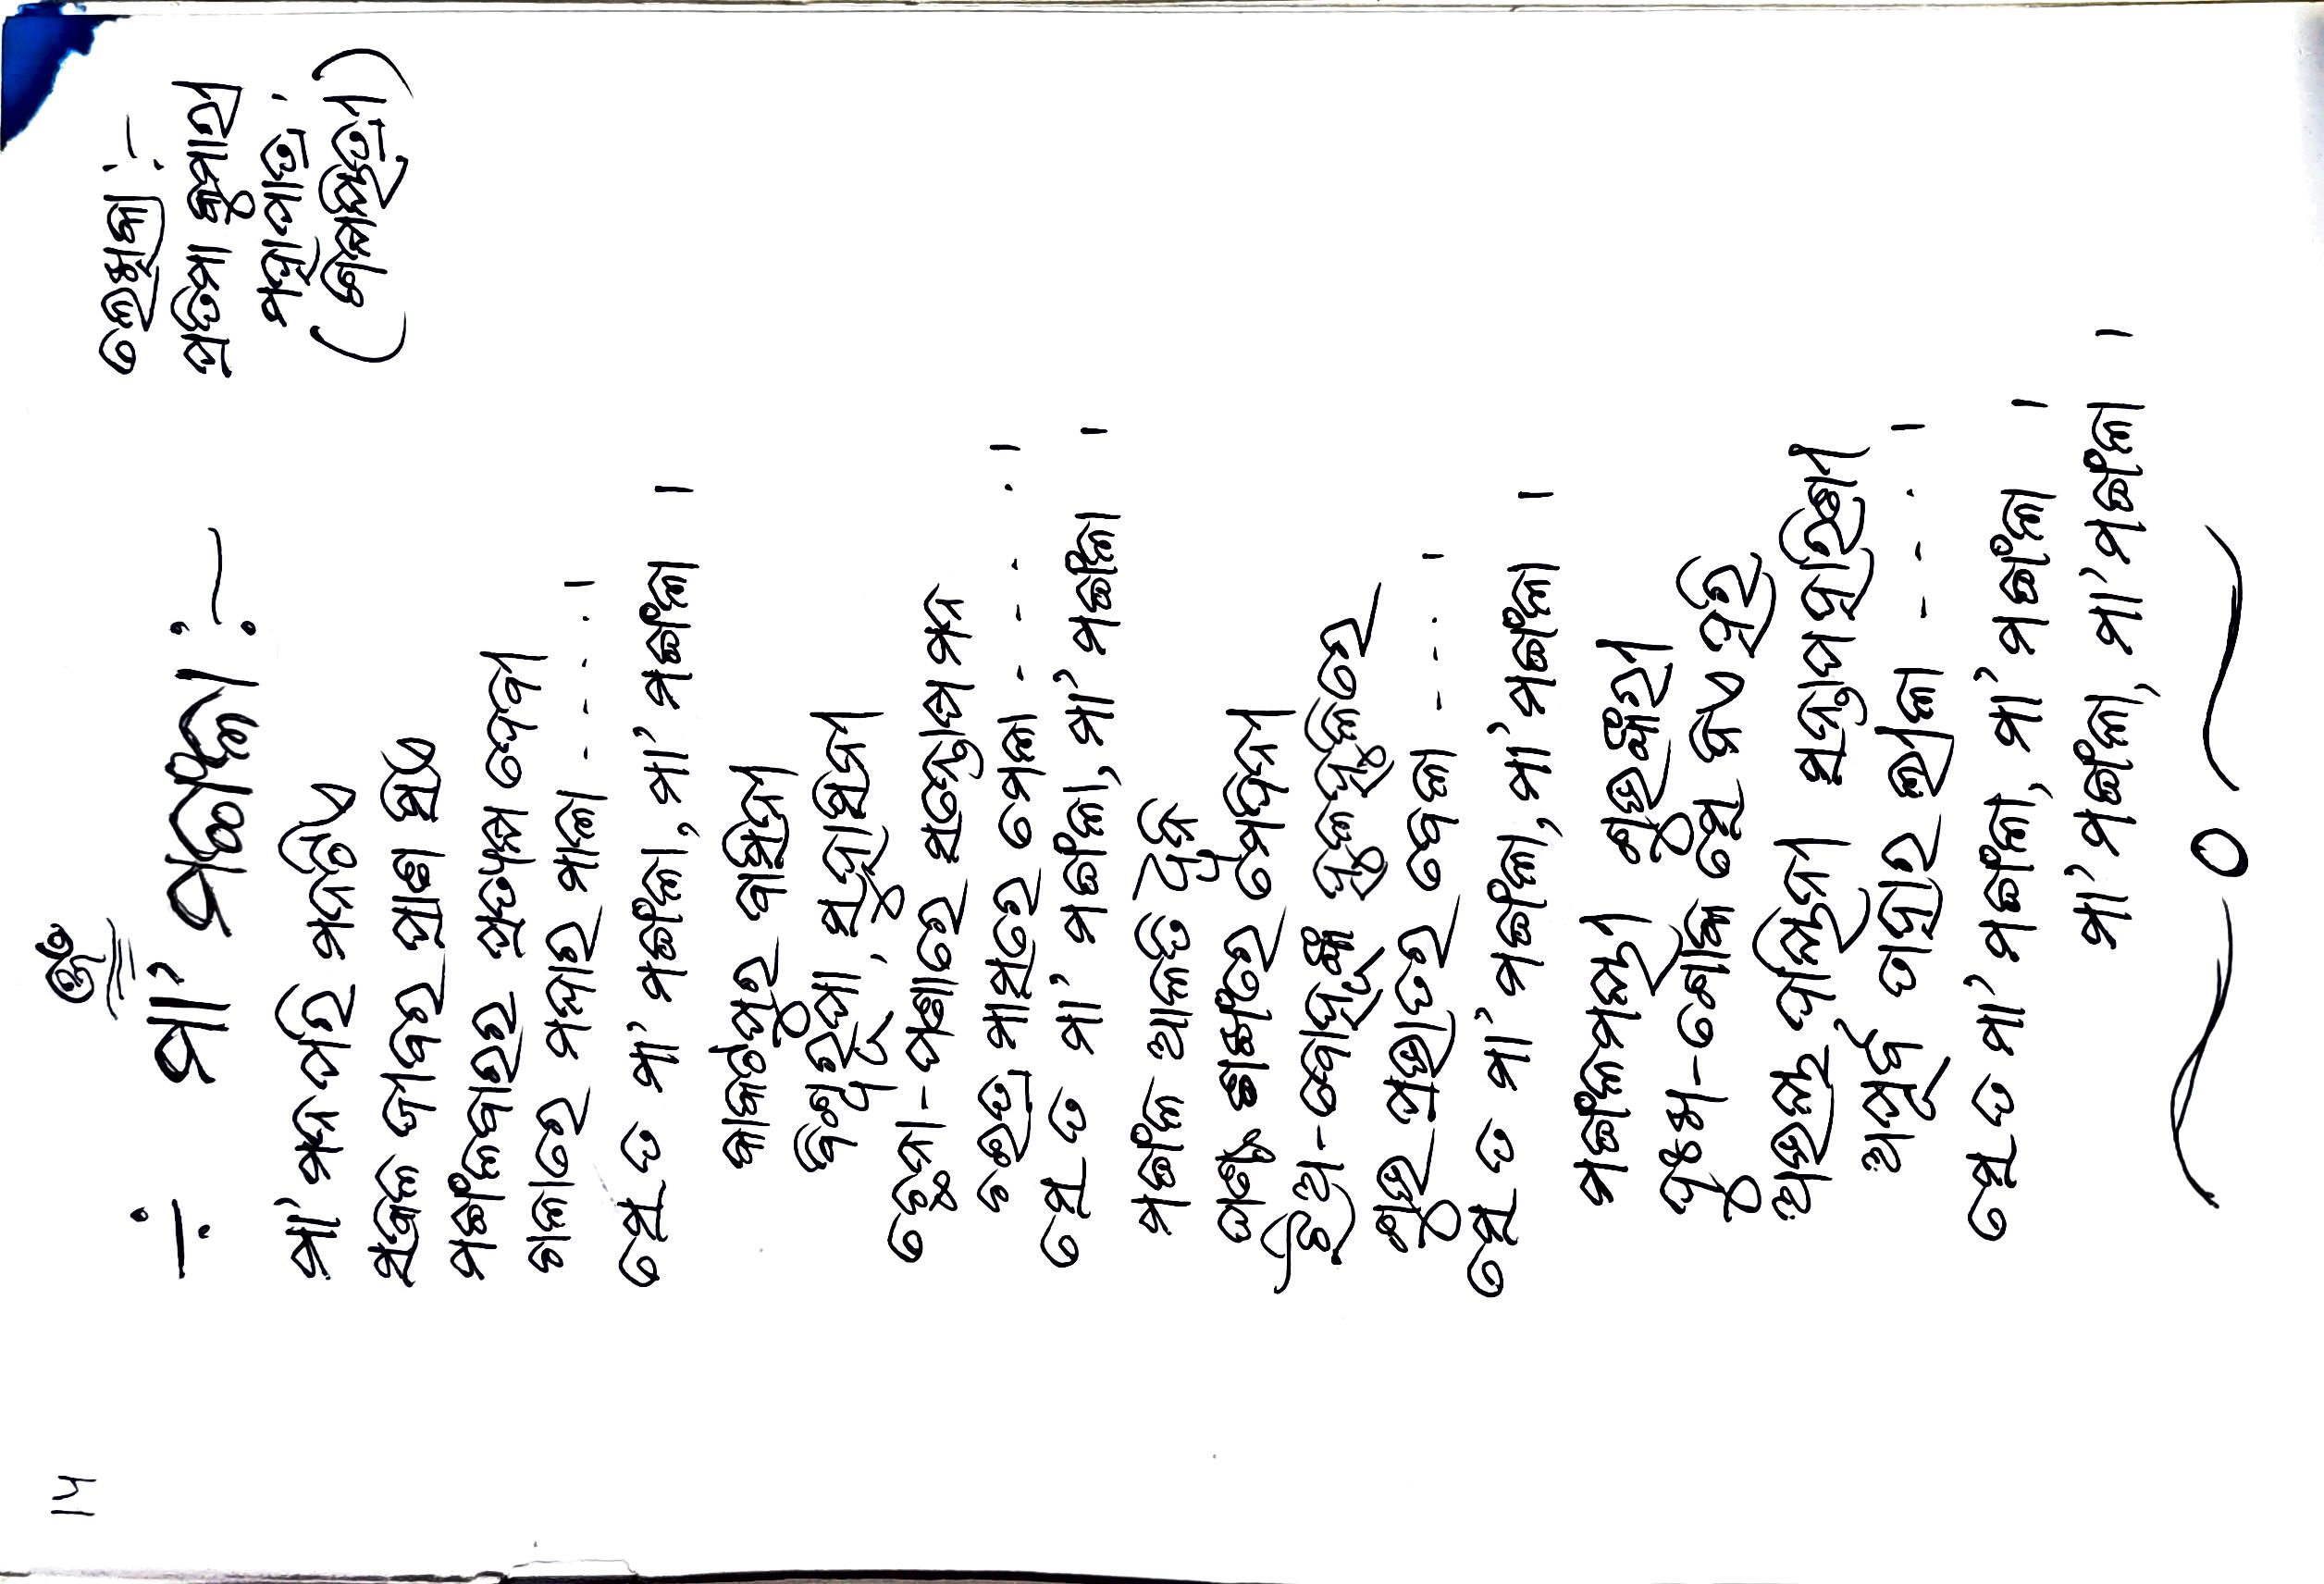 14
ଓଁ
ଲେଖିକା :-
÷ ମା' ମଙ୍ଗଳା :-
ପ୍ରତିମା କୁମାରୀ
ମହାପାତ୍ର
(ଶିକ୍ଷୟିତ୍ରୀ)
ମା' ମନ ପରି ମନଟିଏ
ସକଳ ଜୀବର ପ୍ରାଣ ସିଏ
ମଙ୍ଗଳବାରର ପ୍ରତ୍ୟକ୍ଷ ଦେବୀ
ଗଳାରେ ମନ୍ଦାର ମାଳା - - - - ।
ସେ ତ ମା' ମଙ୍ଗଳା, ମା' ମଙ୍ଗଳା ।
କାକଟପୁର ବାସିନୀ
ବିଶ୍ୱରୂପା, ସୁହାସିନୀ
ଛେନା-ପଣାରେ ସନ୍ତୋଷ ମନ
ଚଇତ୍ର ମାସରେ ମେଳା - - - - ।
ସେ ତ ମା' ମଙ୍ଗଳା, ମା' ମଙ୍ଗଳା ।
ମଙ୍ଗଳ ଆଳତି ଧ୍ୱନି
ଘଣ୍ଟ ଶଙ୍ଖରେ ମେଦିନୀ
ଝିଅ-ବୋହୂଙ୍କ ହୁଳହୁଳିରେ
ଶୁଭ ପ୍ରଭାତର ବେଳା - - - ।
ସେ ତ ମା' ମଙ୍ଗଳା, ମା' ମଙ୍ଗଳା ।
ମଙ୍ଗଳମୟୀ ଶୁଭଙ୍କରୀ
ଦୁଃଖ-ଶୋକ ସେ ନିଏ ହରି
ଅଭୟ ଦାୟିନୀ ସନ୍ତାପ ହାରିଣୀ
ଅପୂର୍ବ ତାହାର ଲୀଳା - - - ।
ସେ ତ ମା' ମଙ୍ଗଳା, ମା' ମଙ୍ଗଳା ।
ମା' ମଙ୍ଗଳା, ମା' ମଙ୍ଗଳା ।